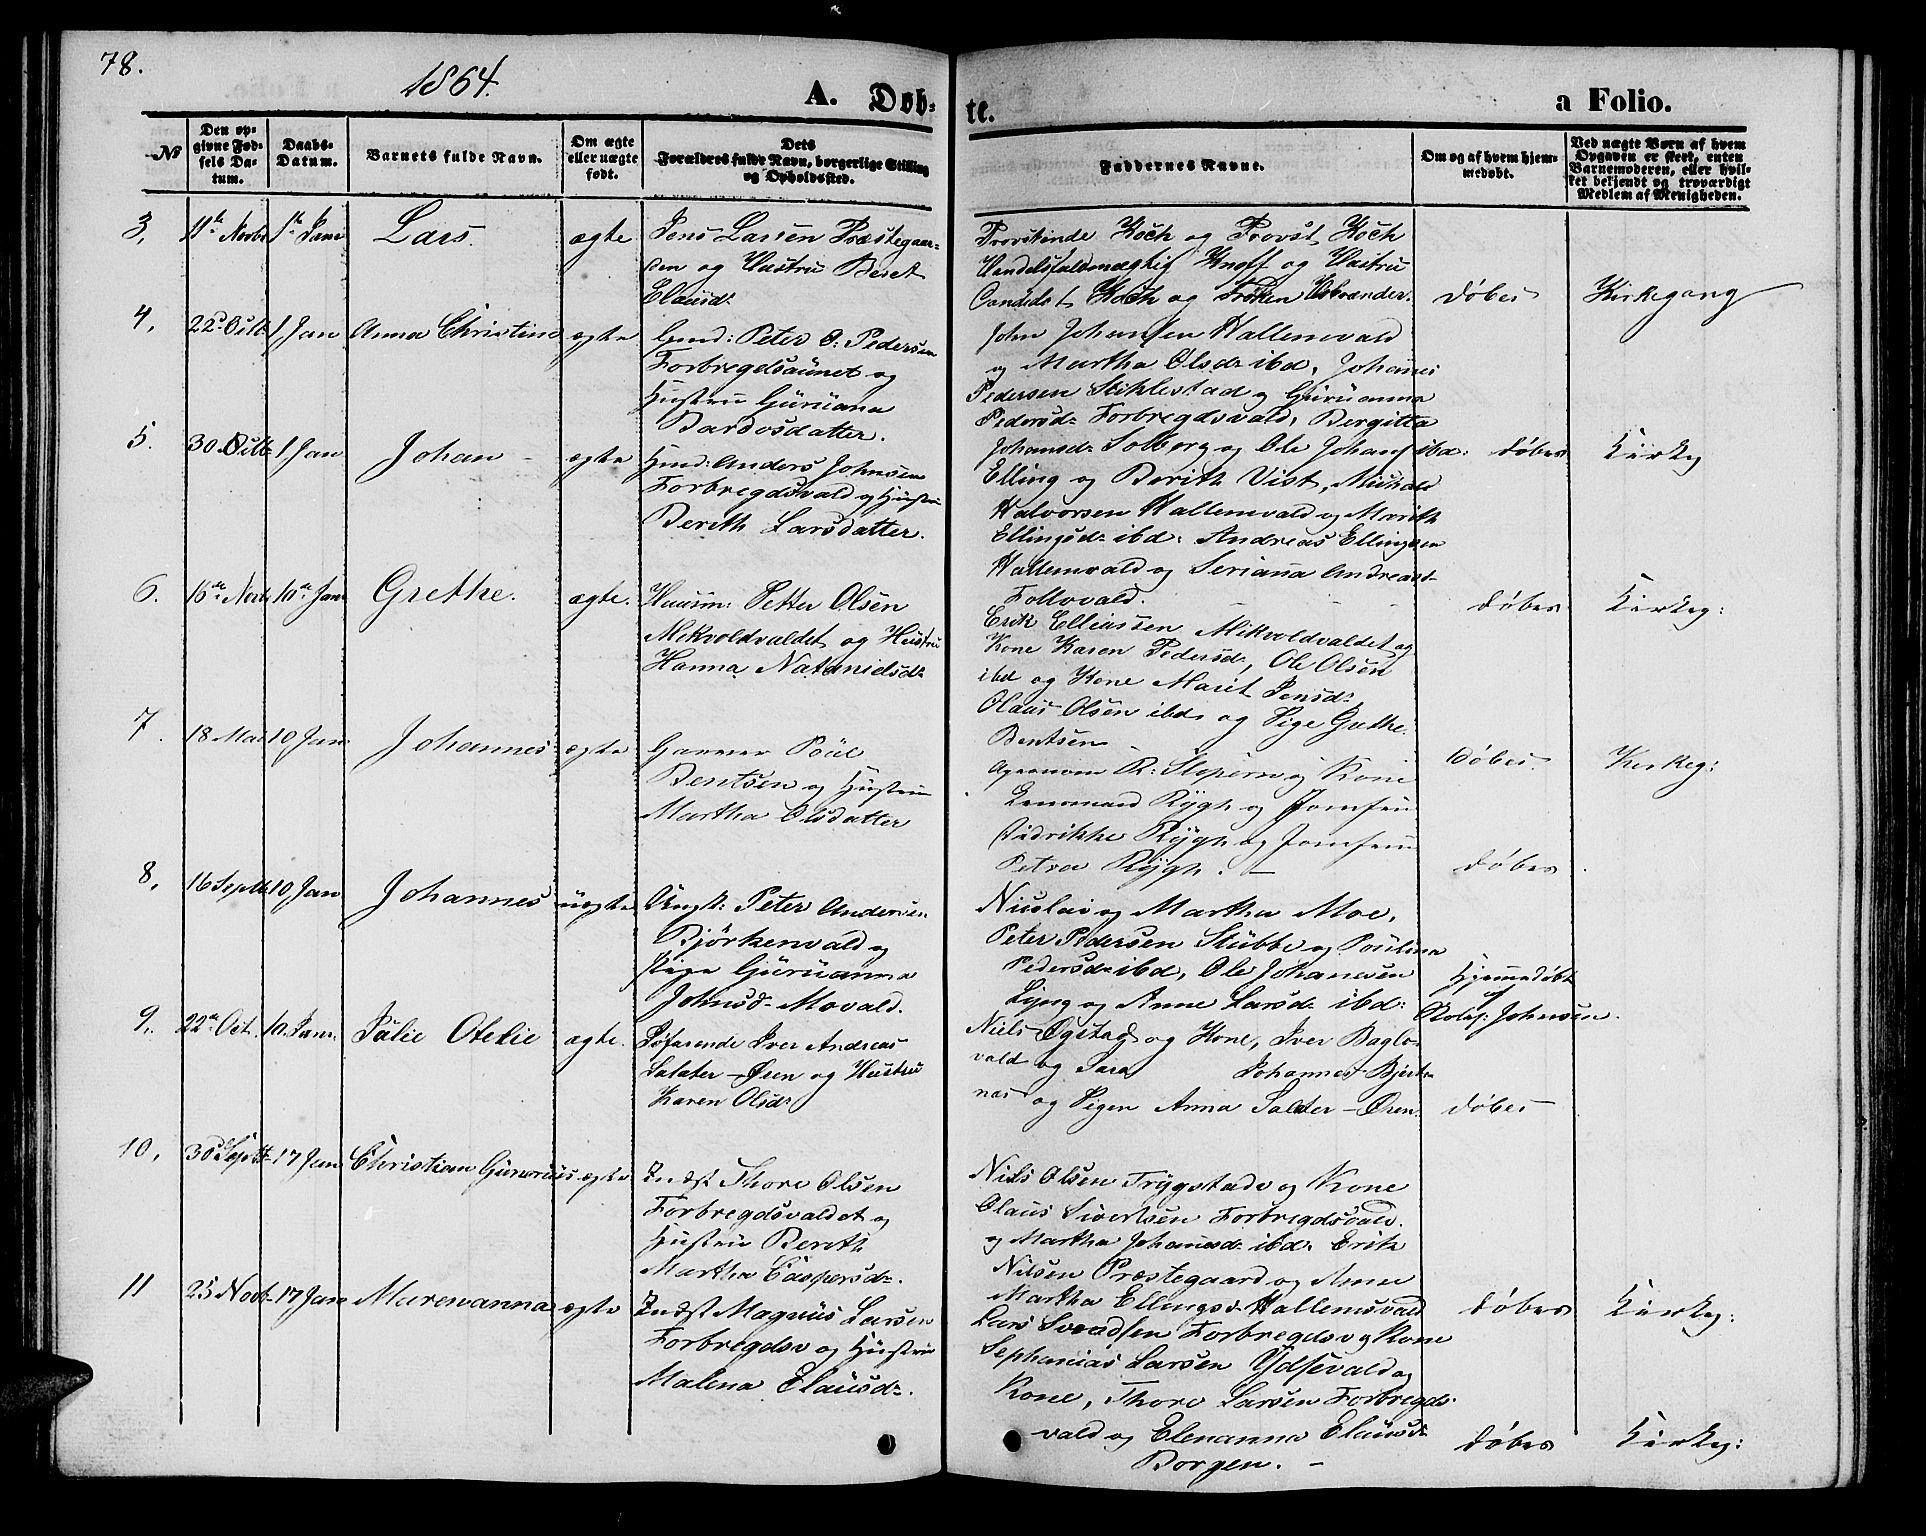 78.
1864.
A. Døb-
te.
a Folio.
№
Den op-
givne Fød-
sels Da-
tum.
Daabs-
Datum.
Barnets fulde Navn.
Om ægte
eller uægte
født.
Dets
Forældres fulde Navn, borgerlige Stilling
og Opholdssted.
Faddernes Navne.
Om og af hvem hjem-
medøbt.
Ved uægte Børn af hvem
Opgaven er skeet, enten
Barnemoderen, eller hvil-
ket bekjendt og troværdigt
Medlem af Menigheden.
3, 11te Novbr 1te Janr Lars. ægte Jens Larsen Præstegaar-
den og Hustru Beret
Elausd:
Provstinde Koch og Provst Koch
Handelsfuldmægtig Knoff og Hustru
Candidat Koch og Frøken døbes Kirkegang
4, 22d Octb 1 Jan Anna Christine ægte Gmd: Peter O: Pedersen
Forbregdsaunet og
Hustru Guruana
Bardosdatter.
John Johansen Hallemvald
og Martha Olsd: ibd, Johanes
Pedersen Stiklestad og Guruanna
Pedersd: Forbregdsvald, Bergitta
Johansd: Solborg og Ole Johans ibd: døbes Kirkeg
5. 30 Octb 1 Jan Johan - ægte Hmd: Anders Johnsen
Forbregdsvald og Hustru
Berith Larsdatter.
Elling og Berith Vist, Mikal
Halvorsen Hallemvald og Marith
Ellingsd: ibd: Andreas Ellingsen
Hallemvald og Seriana Andreasd
Follovald. døbes Kirkeg:
6. 16de Novb 10de Janr Grethe. ægte. Huusm: Petter Olsen
Mikvoldvaldet og Hustru
Hanna Natanielsd:
Erik Elliassen Mikvoldvaldet og
Kone Karen Pedersd:, Ole Olsen
ibd og Kone Marit Jensd:
Olaus Olsen ibd: og Pige Grethe
Bentsen døbes. Kirkeg:
7. 18 Mai 10 Jan Johannes ægte Garver Poul
Bentsen og Hustru
Martha Olsdatter
Agronom R: og Kone
Lensmand Rygh og Jomfru
Didrikke Rygh og Jomfru
Petra Rygh. - døbes
8, 16 Septb 10 Jan Johannes uægte Ungk: Peter Andersen
Bjørkenvald og
Pige Guruanna
Johnsd: Movald.
Nicolai og Martha Moe,
Peter Pedersen Stubbe og Paulina
Pedersd: ibd, Ole Johansen
Lyng og Anne Larsd: ibd:
Hjemmedøbt
af
Johnsen.
9, 22de Oct. 10. Janr. Julie Otelie ægte. Søfarende Iver Andreas
Salater-Øren og Hustru
Karen Olsd:
Niels Øgstad og Kone, Iver Baglo-
vald og Sara Johannes Bjert-
næs og Pigen Anna Salater-Øren døbes
10, 30d Septb 17 Jan Christian Gunerius ægte Indst Thore Olsen
Forbregdsvaldet og
Hustru Berith
Martha Caspersd:.
Niels Olsen Trygstad og Kone
Olaus Sivertsen Forbregdsvald.
og Martha Johansd: ibd: Erik
Nilsen Præstegaard og Anne
Martha Ellingsd: Hallemsvald døbes Kirkeg:
11 25 Novb 17 Jan Marenanna ægte Indst Magnus Larsen
Forbregdsv og Hustru
Malena Elausd:.
Lars Svendsen Forbregdsv og Kone
Sephanias Larsen Ydsevald og
Kone, Thore Larsen Forbregds-
vald og Elenanna Elausd:
Borgen. - døbes Kirkeg: